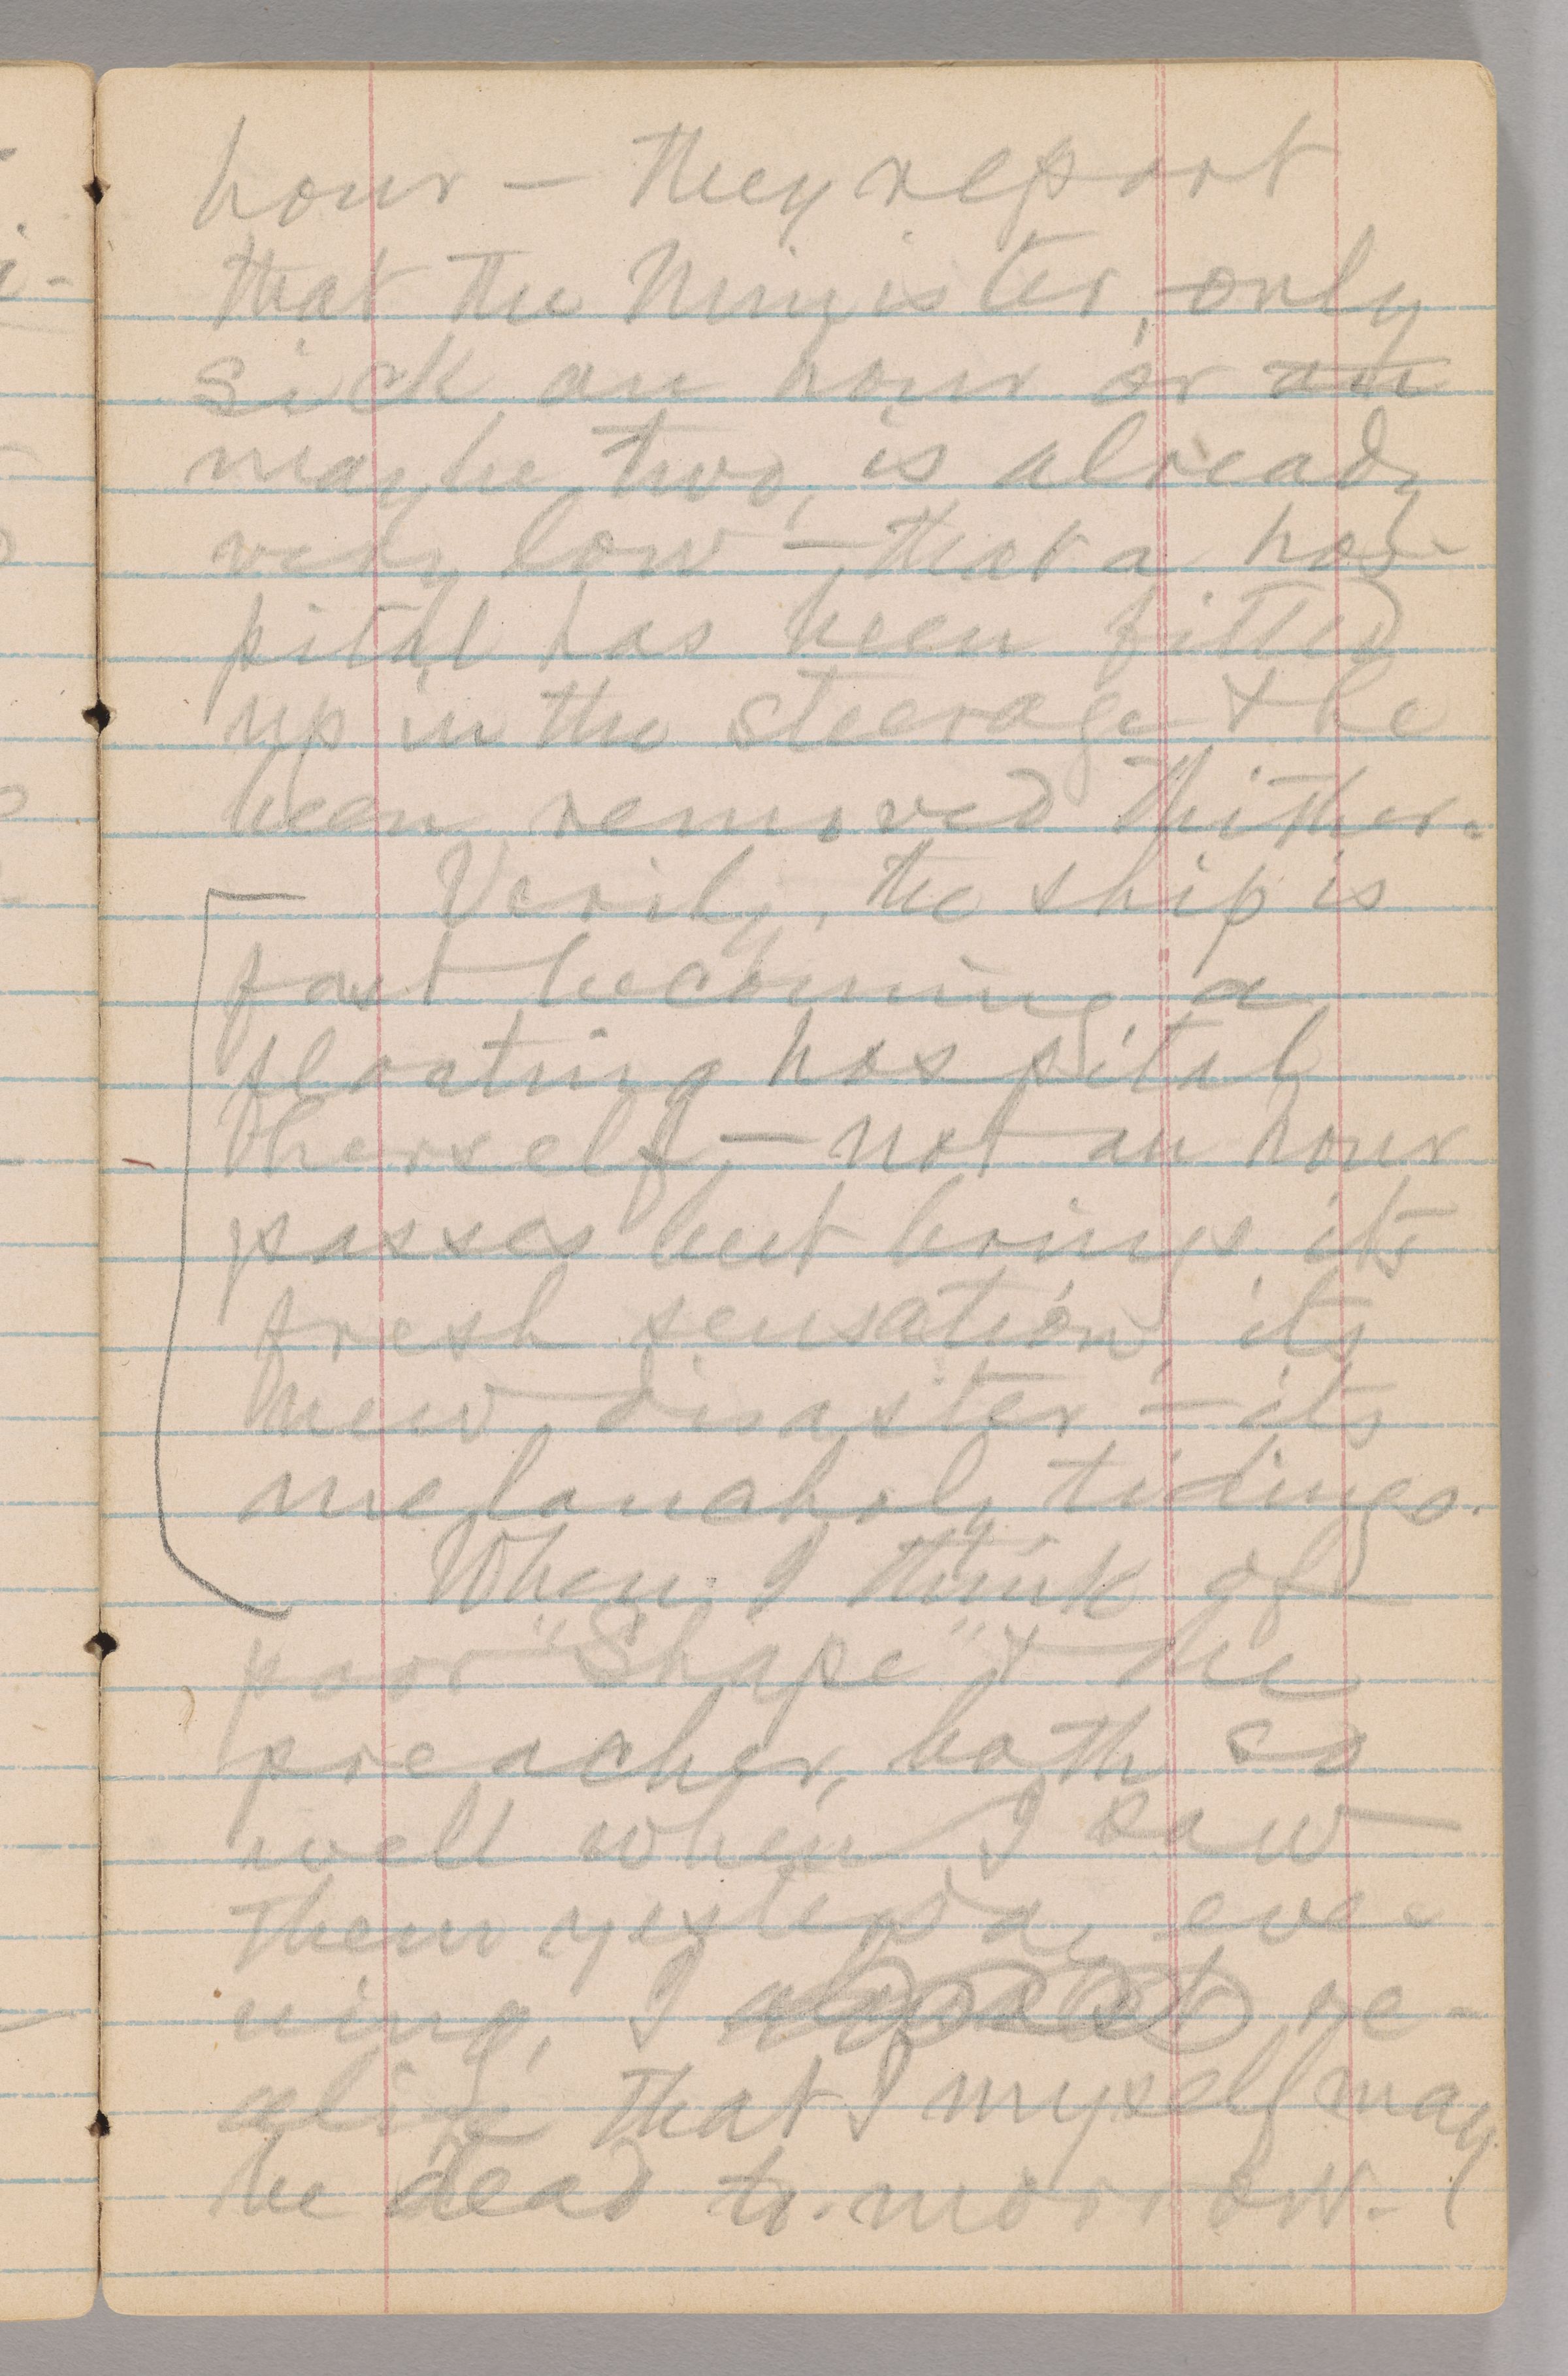 hour — they report
that the Minister, only
sick an hour or an
maybe two, is already
very low — that a hos-
pital has been fitted
up in the steerage & he
been removed thither.
Verily, the ship is
fast becoming a
floating hospital
herself, — not an hour
passes but brings its
fresh sensation, its
new disaster — its
melancholy tidings.
When I think of
poor "Shape" & the
preacher, both so
well when I saw
them yesterday eve-
ning, I almost re-
alize that I myself may
be dead to-morrow.